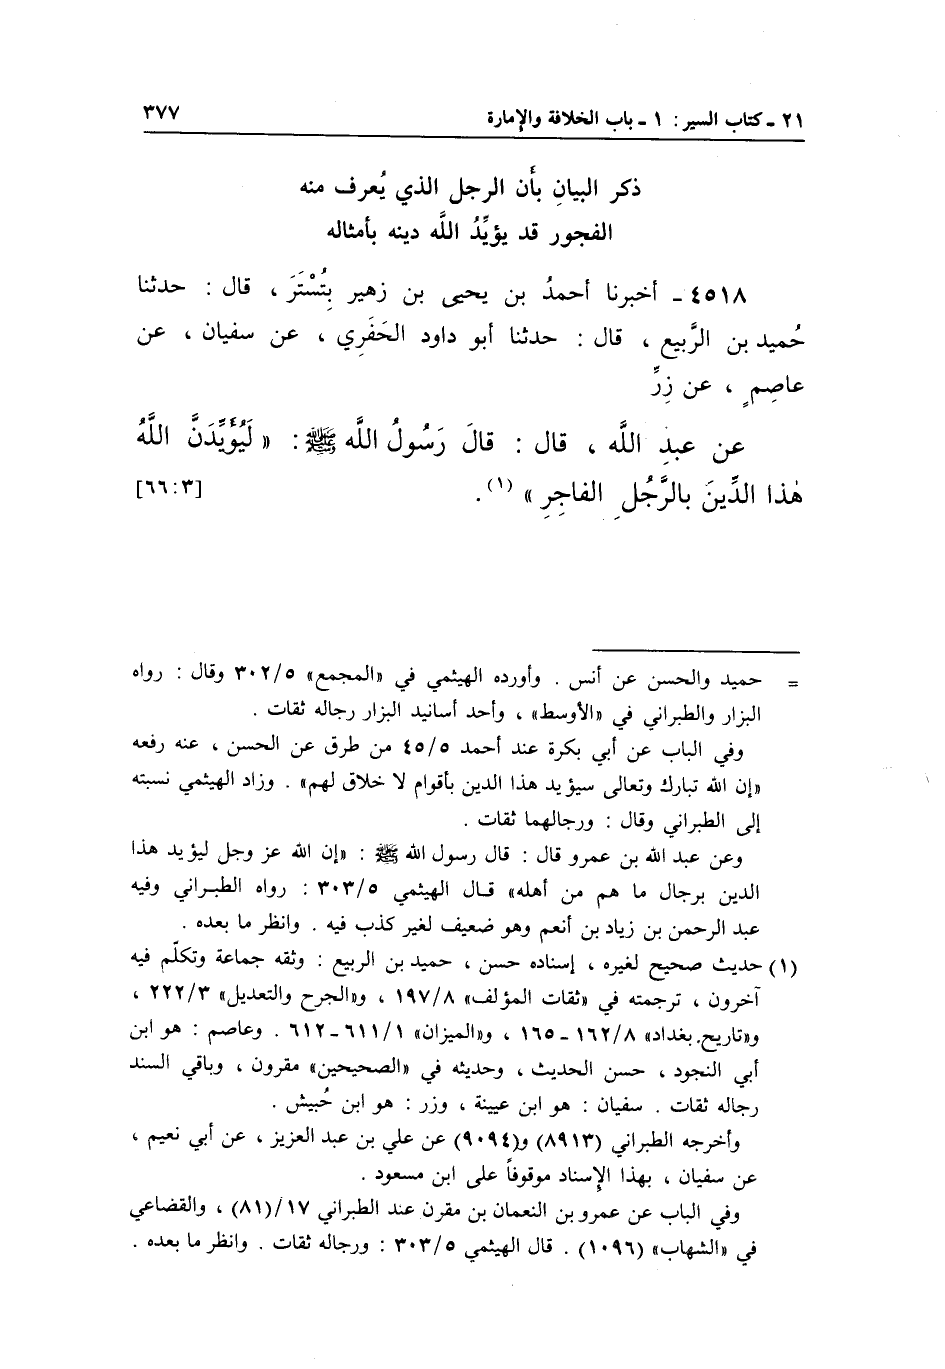 ٢١ ـ كتاب السير: ١ ـ باب الخلافة والإمارة ٣٧٧
ذكر البيانِ بأن الرجل الذي يُعرف منه
الفجور قد يؤيِّدُ اللَّه دينه بأمثاله
٤٥١٨ ـ أخبرنا أحمدُ بن يحيى بن زهير بِتُسْتَرَ ، قال : حدثنا
حُميد بن الرَّبيع ، قال : حدثنا أبو داود الحَفَرِي ، عن سفيان ، عن
عاصِمٍ ، عن زِرٍّ
عن عبدِ اللَّه ، قال : قالَ رَسُولُ اللَّه ﷺ : « لَيُؤَيِّدَنَّ اللَّهُ
هٰذا الدِّينَ بالرَّجُلِ الفاجِرِ » (١) . [٦٦:٣]
= حميد والحسن عن أنس . وأورده الهيثمي في «المجمع» ٣٠٢/٥ وقال : رواه
البزار والطبراني في «الأوسط» ، وأحد أسانيد البزار رجاله ثقات .
وفي الباب عن أبي بكرة عند أحمد ٤٥/٥ من طرق عن الحسن ، عنه رفعه
«إن الله تبارك وتعالى سيؤيد هذا الدين بأقوام لا خلاق لهم» . وزاد الهيثمي نسبته
إلى الطبراني وقال : ورجالهما ثقات .
وعن عبد الله بن عمرو قال : قال رسول الله ﷺ : «إن الله عز وجل ليؤيد هذا
الدين برجال ما هم من أهله» قال الهيثمي ٣٠٣/٥ : رواه الطبراني وفيه
عبد الرحمن بن زياد بن أنعم وهو ضعيف لغير كذب فيه . وانظر ما بعده .
(١) حديث صحيح لغيره ، إسناده حسن ، حميد بن الربيع : وثقه جماعة وتكلّم فيه
آخرون ، ترجمته في «ثقات المؤلف» ١٩٧/٨ ، و«الجرح والتعديل» ٢٢٢/٣ ،
و«تاريخ بغداد» ١٦٢/٨ ـ ١٦٥ ، و«الميزان» ٦١١/١ ـ ٦١٢ . وعاصم : هو ابن
أبي النجود ، حسن الحديث ، وحديثه في «الصحيحين» مقرون ، وباقي السند
رجاله ثقات . سفيان : هو ابن عيينة ، وزر : هو ابن حُبيش .
وأخرجه الطبراني (٨٩١٣) و(٩٠٩٤) عن علي بن عبد العزيز ، عن أبي نعيم ،
عن سفيان ، بهذا الإسناد موقوفاً على ابن مسعود .
وفي الباب عن عمرو بن النعمان بن مقرن عند الطبراني ١٧/(٨١) ، والقضاعي
في «الشهاب» (١٠٩٦) . قال الهيثمي ٣٠٣/٥ : ورجاله ثقات . وانظر ما بعده .